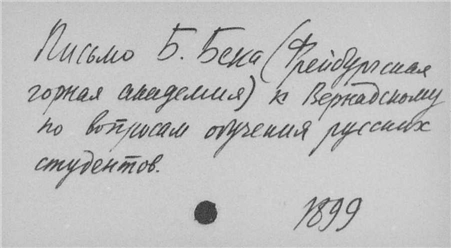 Письмо Б. Бека (Фрейбургская
горная академия) к Вернадскому
по вопросам обучения русских
студентов.
1899